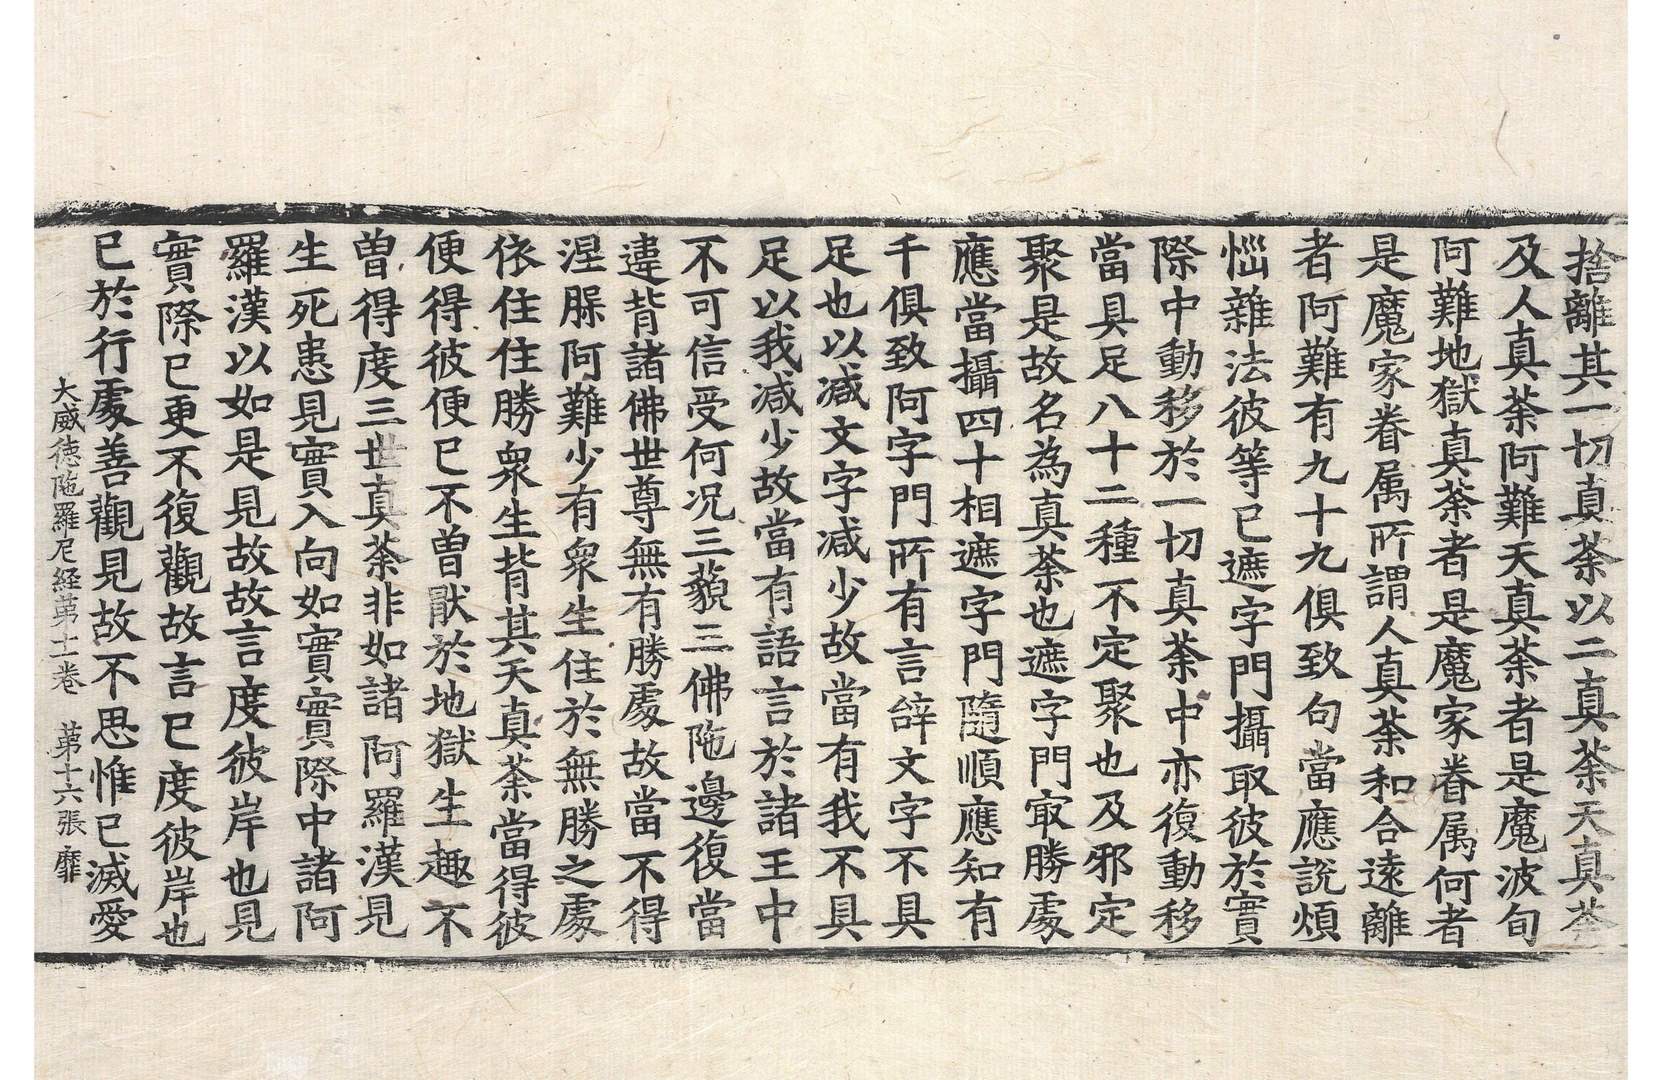 捨離其一切真荼以二真荼天真荼
及人真荼阿難天真荼者是魔波旬
阿難地獄真荼者是魔家眷属何者
是魔家眷属所謂人真荼和合遠離
者阿難有九十九俱致句當應說煩
惱雜法彼等已遮字門攝取彼於實
際中動移於一切真荼中亦復動移
當具足八十二種不定聚也及邪定
聚是故名為真荼也遮字門㝡勝處
應當攝四十相遮字門隨順應知有
千俱致阿字門所有言辝文字不具
足也以减文字减少故當有我不具
足以我减少故當有語言於諸王中
不可信受何况三藐三佛陁邊復當
違背諸佛世尊無有勝處故當不得
涅脲阿難少有衆生住於無勝之處
依住住勝衆生背其天真荼當得彼
便得彼便已不曽猒於地獄生趣不
曽得度三世真荼非如諸阿羅漢見
生死患見實入向如實實際中諸阿
羅漢以如是見故故言度彼岸也見
實際已更不復觀故言已度彼岸也
已於行處善觀見故不思惟已滅愛
大威徳陁羅尼経苐十一巻 苐十六張 靡